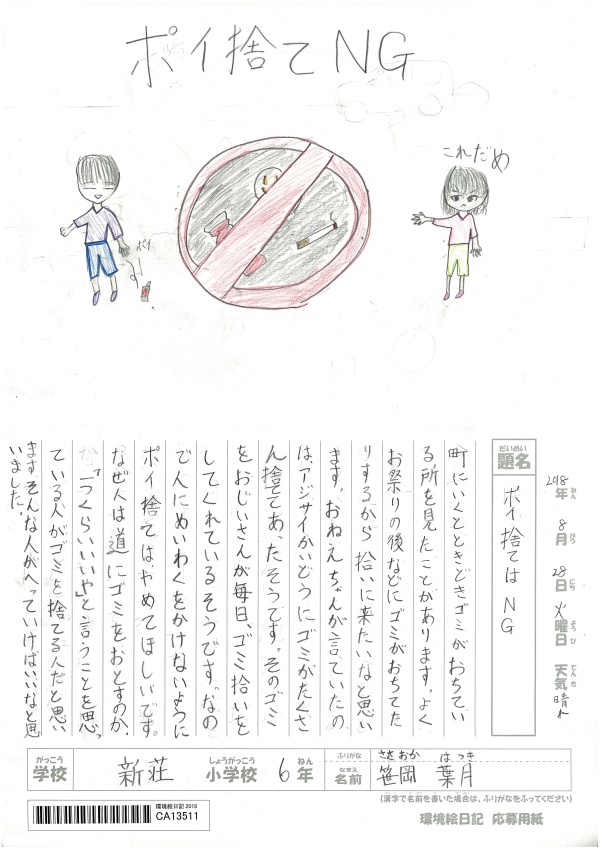 ポイ捨てNG
これだめ
ポイ
2018年ねん 8月がつ 28日にち 火曜日ようび 天気てんき 晴れ
だいめい
題名
ポイ捨てはNG
町にいくとときどきゴミがおちてい
る所を見たことがあります。よく
お祭りの後などにゴミがおちてた
りするから拾いに来たいなと思い
ます。おねえちゃんが言っていたの
は、アジサイかいどうにゴミがたくさ
ん捨ててあったそうです。そのゴミ
をおじいさんが毎日、ゴミ拾いを
してくれているそうです。なの
で人にめいわくをかけないように
ポイ捨てはやめてほしいです。
なぜ人は道にゴミをおとすのか、
「1つくらいいいや」と言うことを思っ
ている人がゴミを捨てる人だと思い
ますそんな人がへっていけばいいなと思
いました。
がっこう
学校 新荘 しょうがっこう
小学校 6 ねん
年
ふりがな ささおか はつき
なまえ
名前 笹岡 葉月
(漢字で名前を書いた場合は、ふりがなをふってください)
環境絵日記 2018
CA13511
環境絵日記 応募用紙